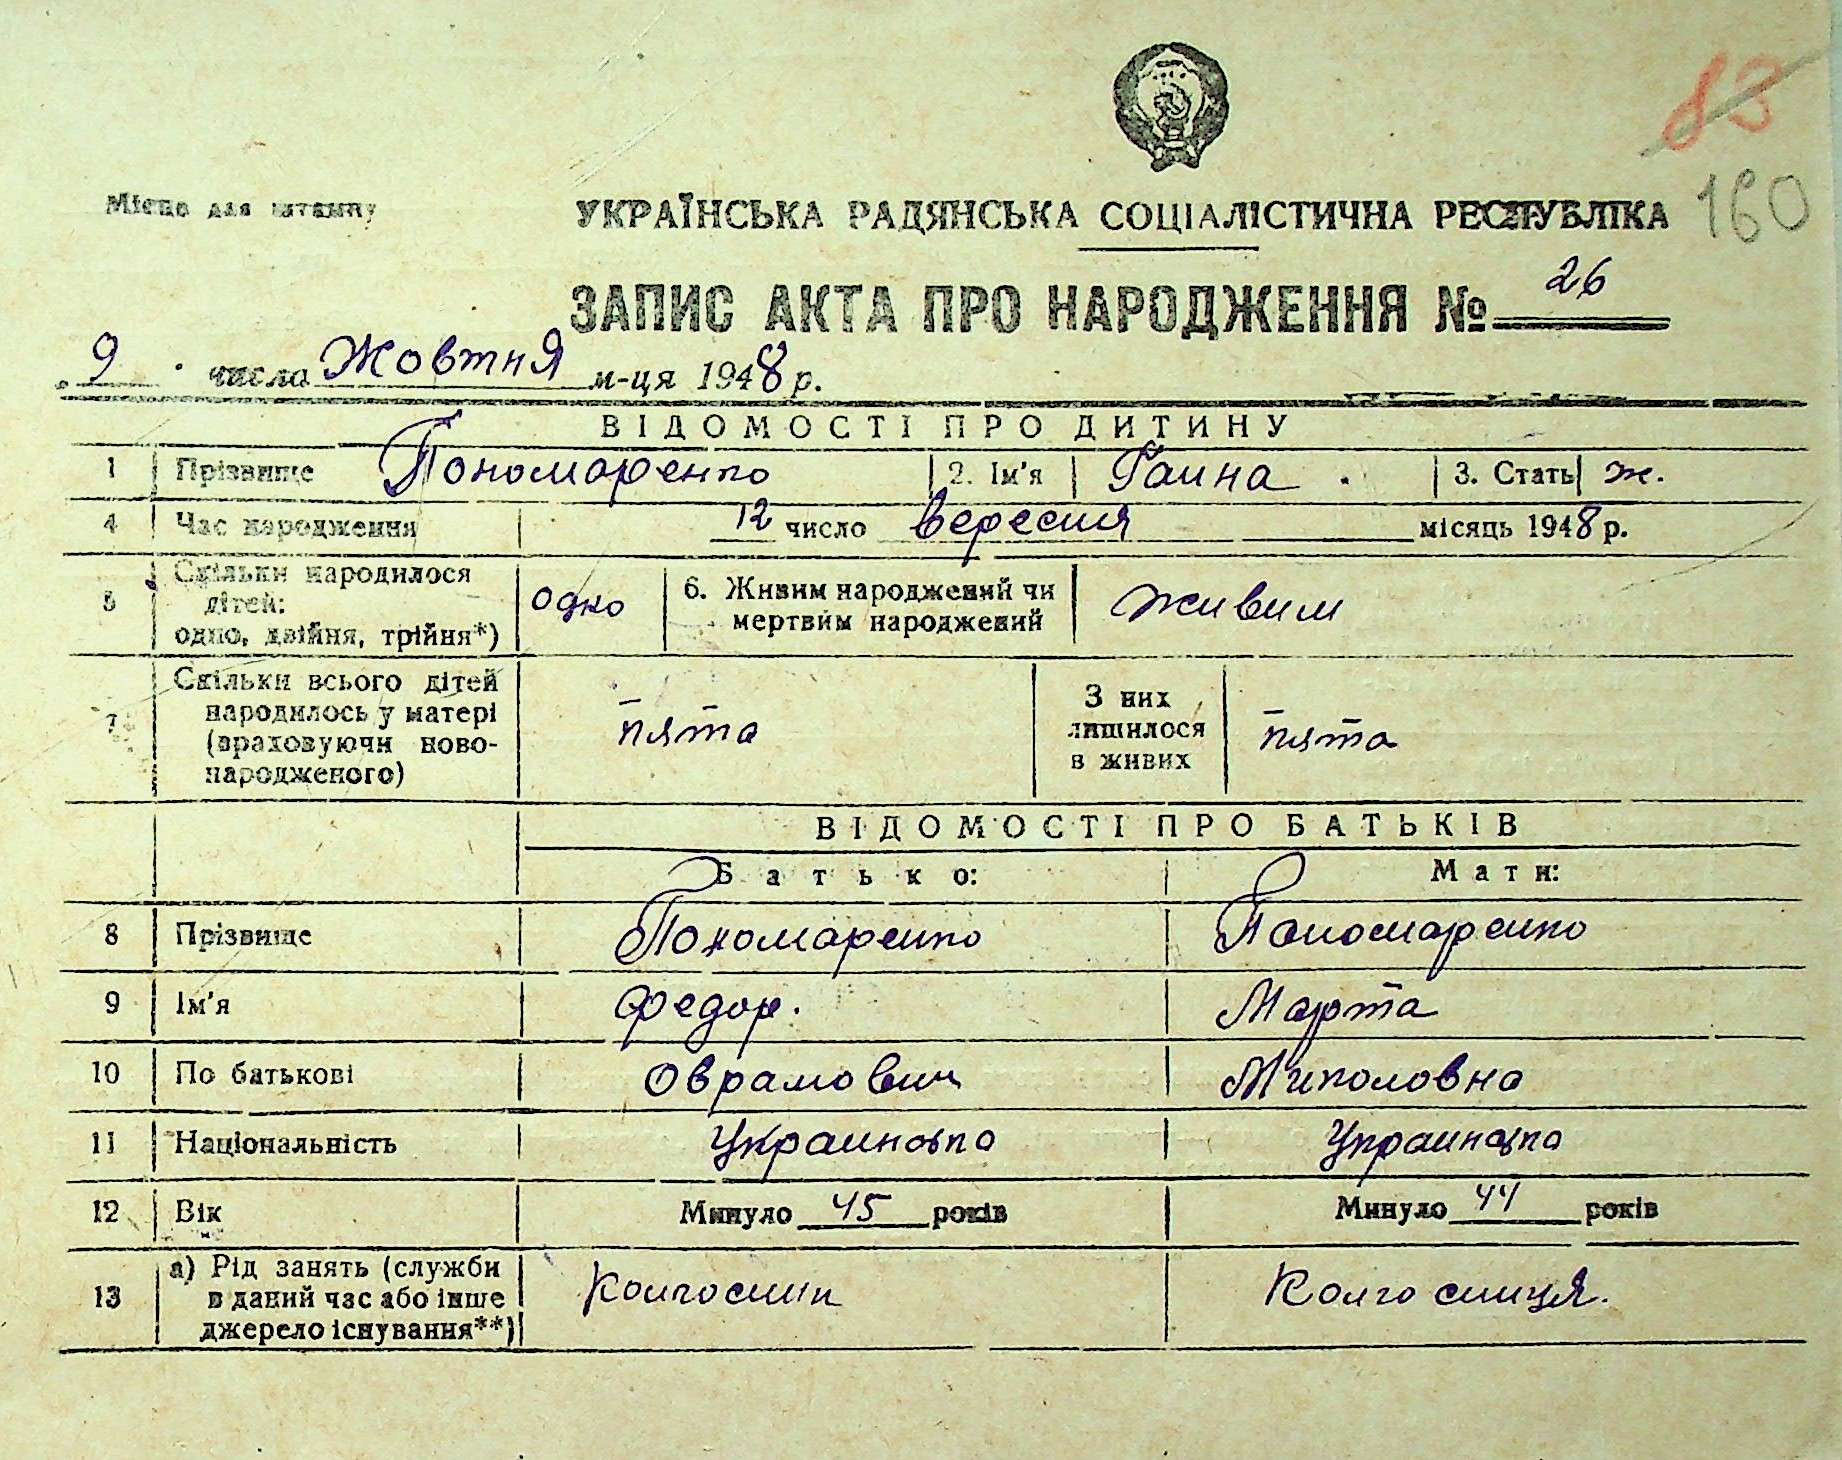 83
160
Місце для штампу
УКРАЇНСЬКА РАДЯНСЬКА СОЦІАЛІСТИЧНА РЕСПУБЛІКА
ЗАПИС АКТА ПРО НАРОДЖЕННЯ № 26
9 числа Жовтня м-ця 1948 р.
ВІДОМОСТІ ПРО ДИТИНУ
1 Прізвище Пономаренко 2. Ім'я Ганна 3. Стать ж.
4 Час народження 12 число вересня місяць 1948 р.
5 Скільки народилося
дітей:
одно, двійня, трійня*)
одно
6. Живим народжений чи
мертвим народжений
живим
7 Скільки всього дітей
народилось у матері
(враховуючи ново-
народженого)
пята
З них
лишилося
в живих
пята
ВІДОМОСТІ ПРО БАТЬКІВ
Батько: Мати:
8 Прізвище Пономаренко Пономаренко
9 Ім'я Федор. Марта
10 По батькові Оврамович Миколовна
11 Національність Украинська Украинська
12 Вік Минуло 45 років Минуло 44 років
13 а) Рід занять (служби
в даний час або інше
джерело існування**)
Колгоспник Колгоспниця.